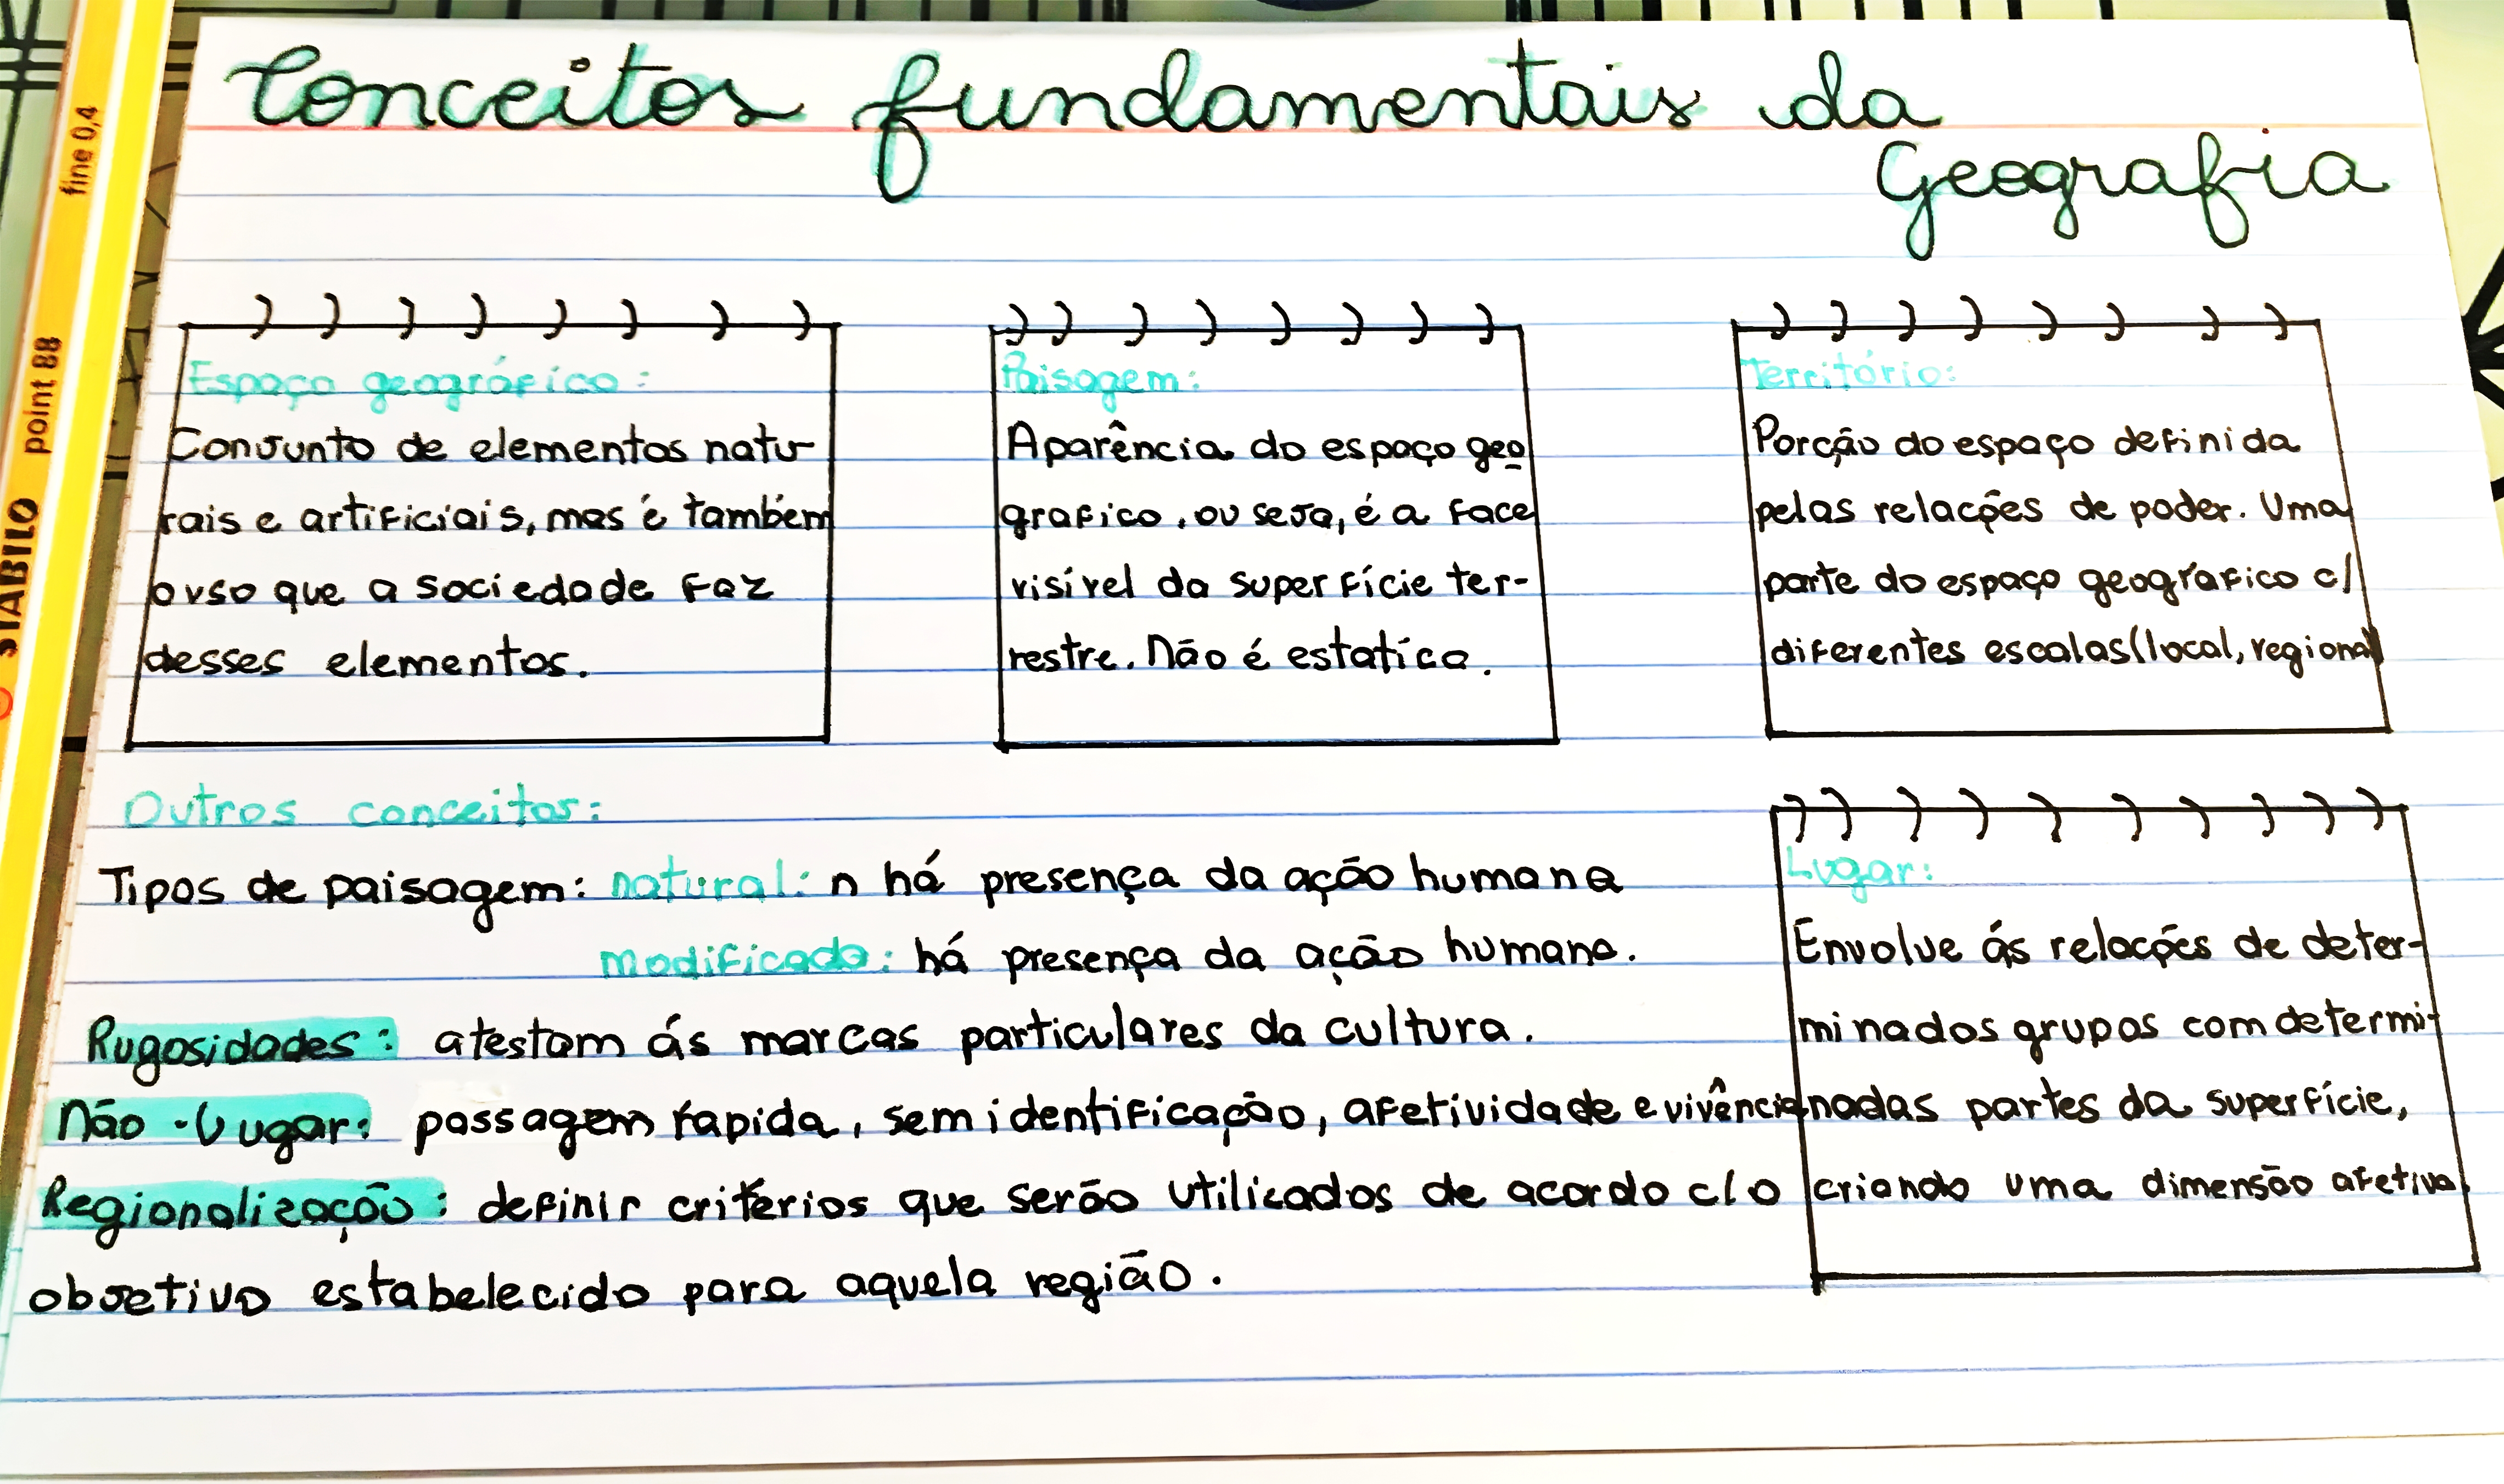 Conceitos fundamentais da
Geografia
Espaço geográfico:
Conjunto de elementos natu-
rais e artificiais, mas é também
o uso que a sociedade faz
desses elementos.
Paisagem:
Aparência do espaço geo
grafico, ou seja, é a face
visível da superfície ter-
restre. Não é estatica.
Território:
Porção do espaço definida
pelas relações de poder. Uma
parte do espaço geográfico c/
diferentes escalas (local, regional)
Outros conceitos:
Tipos de paisagem: natural: n há presença da ação humana
modificada: há presença da ação humana.
Rugosidades: atestam ás marcas particulares da cultura.
Não-Lugar: passagem rapida, sem identificação, afetividade e vivência
Regionalização: definir critérios que serão utilizados de acordo c/ o
objetivo estabelecido para aquela região.
Lugar:
Envolve ás relações de deter-
minados grupos com determi-
nadas partes da superfície,
criando uma dimensão afetiva.
STABILO point 88 fine 0,4